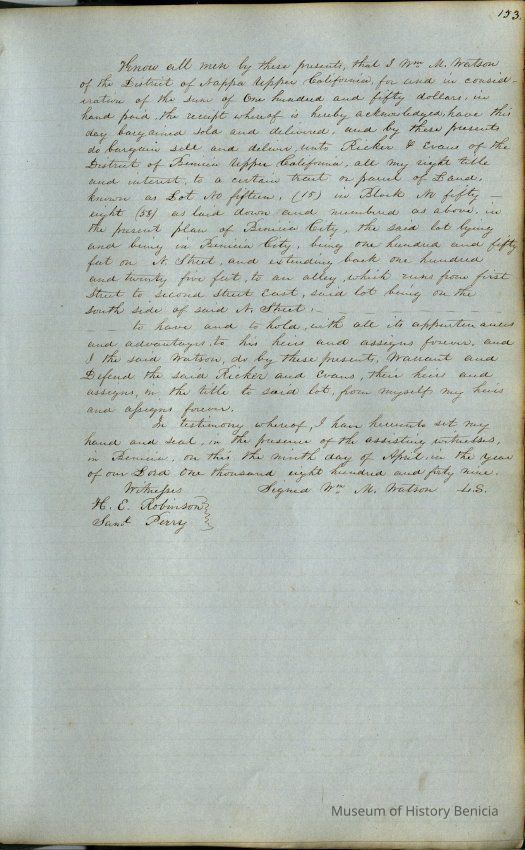 153.
Know all men by these presents, that I Wm M. Watson
of the District of Nappa Upper California, for and in consid-
eration of the sum of One hundred and fifty dollars, in
hand paid, the receipt whereof is hereby acknowledged, have this
day bargained sold and delivered, and by these presents
do bargain sell and deliver unto Ricker & Evans of the
District of Benicia Upper California, all my right title
and interest, to a certain tract or parcel of Land,
known as Lot No fifteen, (15) in Block No fifty –
eight (58) as laid down and numbered as above, in
the present plan of Benicia City, the said lot lying
and being in Benicia City, being one hundred and fifty
feet on N. Street, and extending back one hundred
and twenty five feet, to an alley, which runs from first
Street to second Street East, said lot being on the
South side of said N. Street.
to have and to hold, with all its appurtenances
and advantages, to his heirs and assigns forever, and
I the said Watson, do by these presents, Warrant and
Defend the said Ricker and Evans, their heirs and
assigns, in the title to said lot, from myself my heirs
and assigns forever.
In testimony whereof, I have hereunto set my
hand and seal, in the presence of the assisting witnesses,
in Benicia, on this the ninth day of April, in the year
of our Lord One thousand eight hundred and forty nine.
Witnesses Signed Wm M. Watson L.S.
H. E. Robinson
Saml Perry
Museum of History Benicia